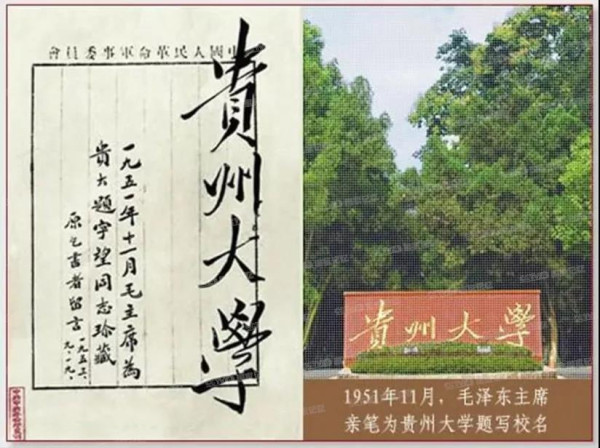 中國人民革命軍事委員會
貴州大學
一九五一年十一月毛主席為
貴大題字望同志珍藏
原乞書者留言
貴州大學
1951年11月，毛泽东主席
亲笔为贵州大学题写校名